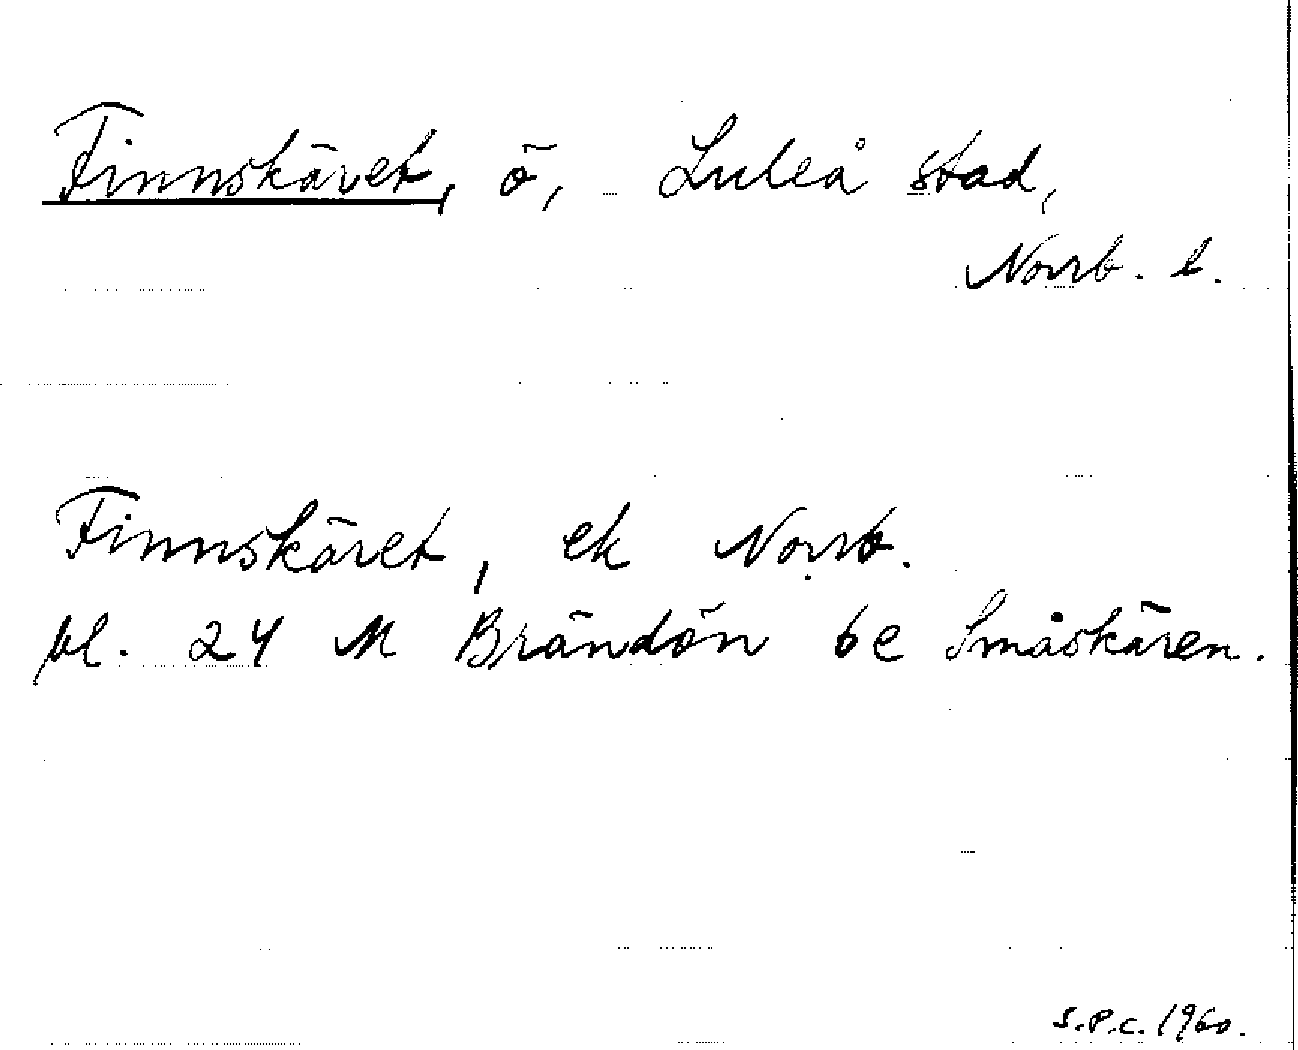 Finnskäret, ö, Luleå stad,
Norrb. l.
Finnskäret, ek Norrb.
bl. 24 M Brändön 6e Småskären.
S.P.C. 1960.